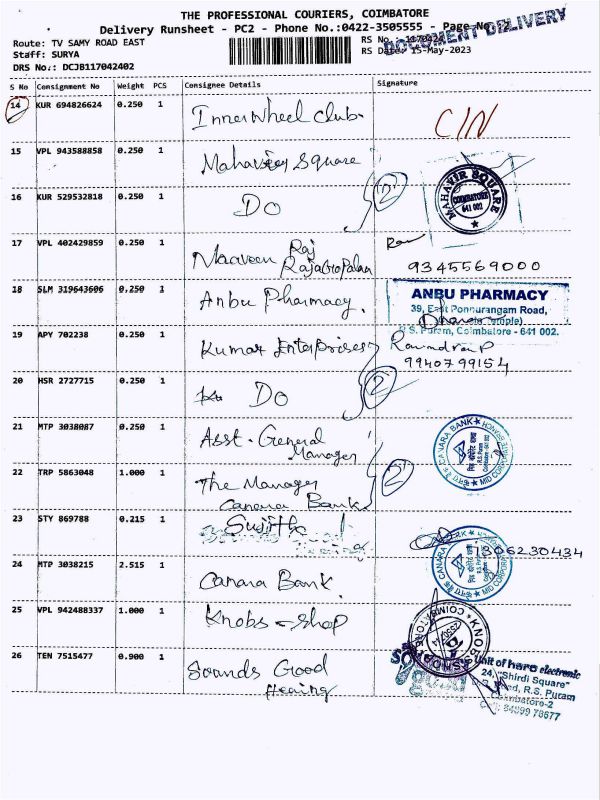 THE PROFESSIONAL COURIERS, COIMBATORE
Delivery Runsheet - PC2 - Phone No.:0422-3505555 - Page No. 2
DOCUMENT DELIVERY
Route: TV SAMY ROAD EAST
RS No.: 1170424
Staff: SURYA
RS Date: 15-May-2023
DRS No.: DCJB117042402
S No Consignment No Weight PCS Consignee Details Signature
14 KUR 694826624 0.250 1 Innerwheel club. C/N
15 VPL 943588858 0.250 1 Mahaveer Square
16 KUR 529532818 0.250 1 Do 2
MAHAVIR SQUARE
COIMBATORE
641 002
17 VPL 402429859 0.250 1 Naaveen Raj
Rajagopalan 9345569000
18 SLM 319643606 0.250 1 Anbu Pharmacy.
ANBU PHARMACY
39, East Ponnurangam Road,
R.S. Puram, Coimbatore - 641 002.
19 APY 702238 0.250 1 Kumar Enterprises Ravindran P
9940799154
20 HSR 2727715 0.250 1 Do 2
21 MTP 3038087 0.250 1 Asst. General
Manager
CANARA BANK
22 TRP 5863048 1.000 1 The Manager
Canara Bank 2
23 STY 869788 0.215 1 Sujitha
7306230434
24 MTP 3038215 2.515 1 Canara Bank.
CANARA BANK
25 VPL 942488337 1.000 1 Knobs - shop
COIMBATORE
26 TEN 7515477 0.900 1 Sounds Good
Hearing
Unit of hero electronic
24, "Shirdi Square"
Road, R.S. Puram
Coimbatore-2